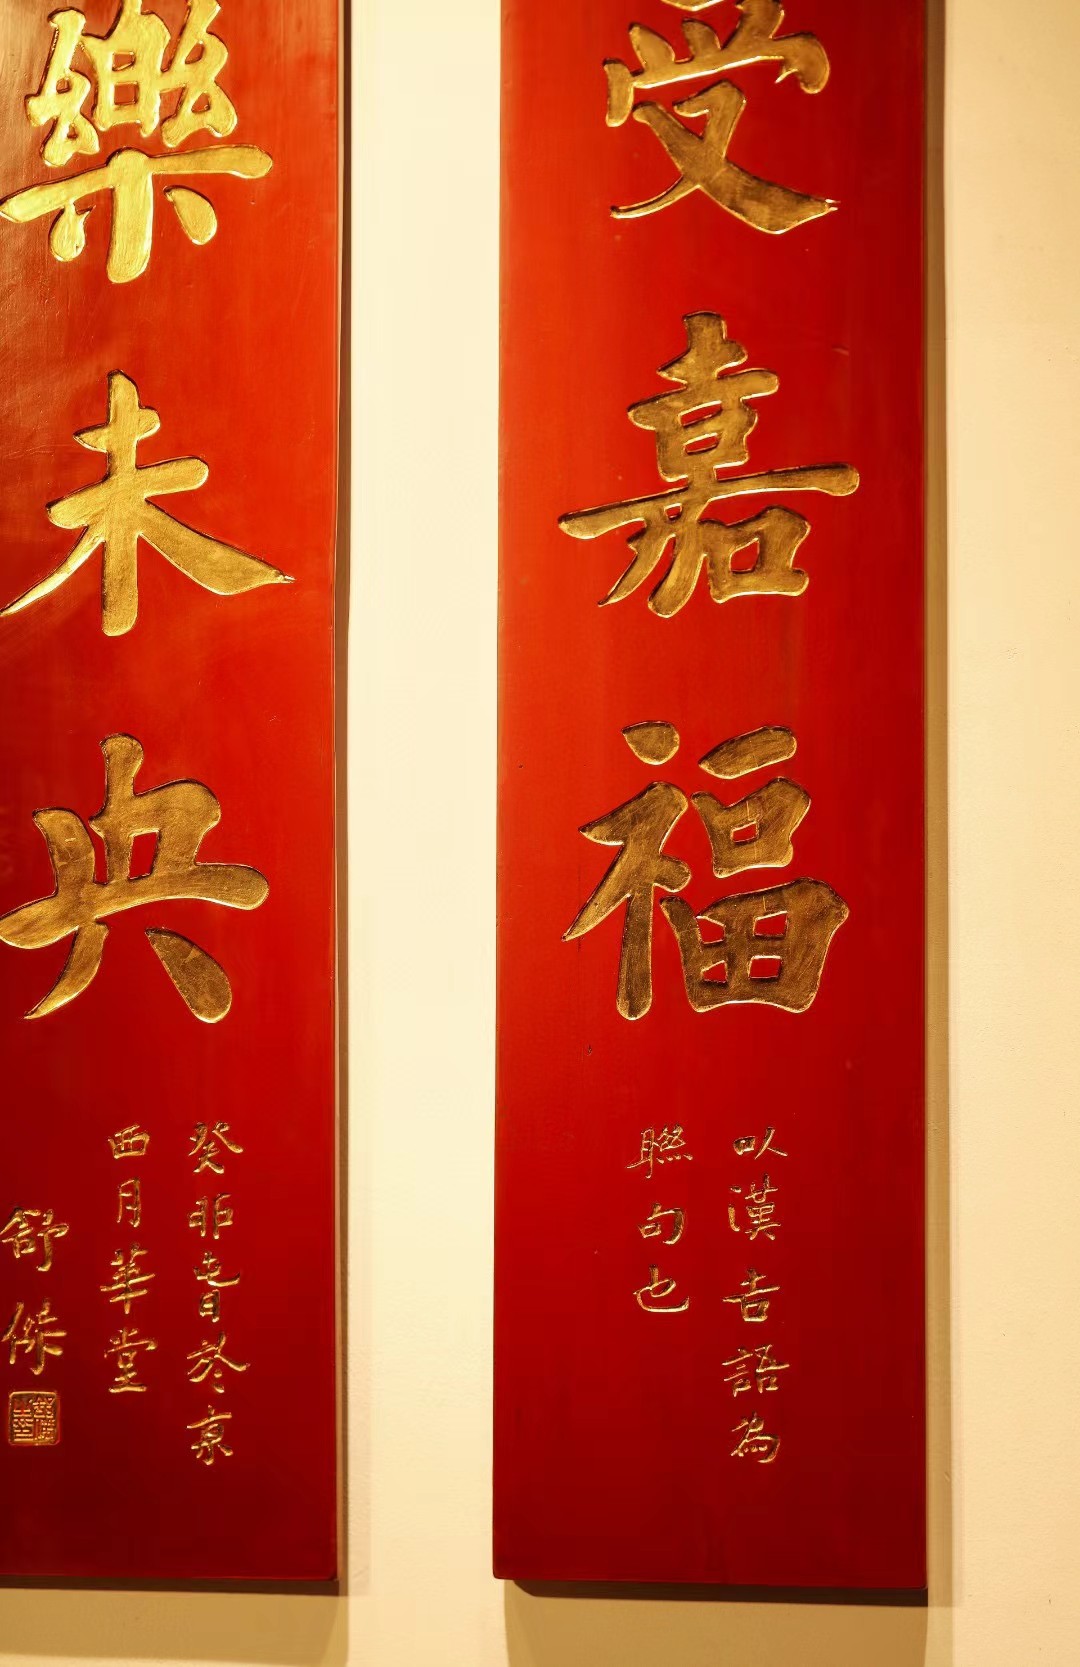 受嘉福
以漢吉語為
聯句也
樂未央
癸卯旾於京
西月華堂
舒傑